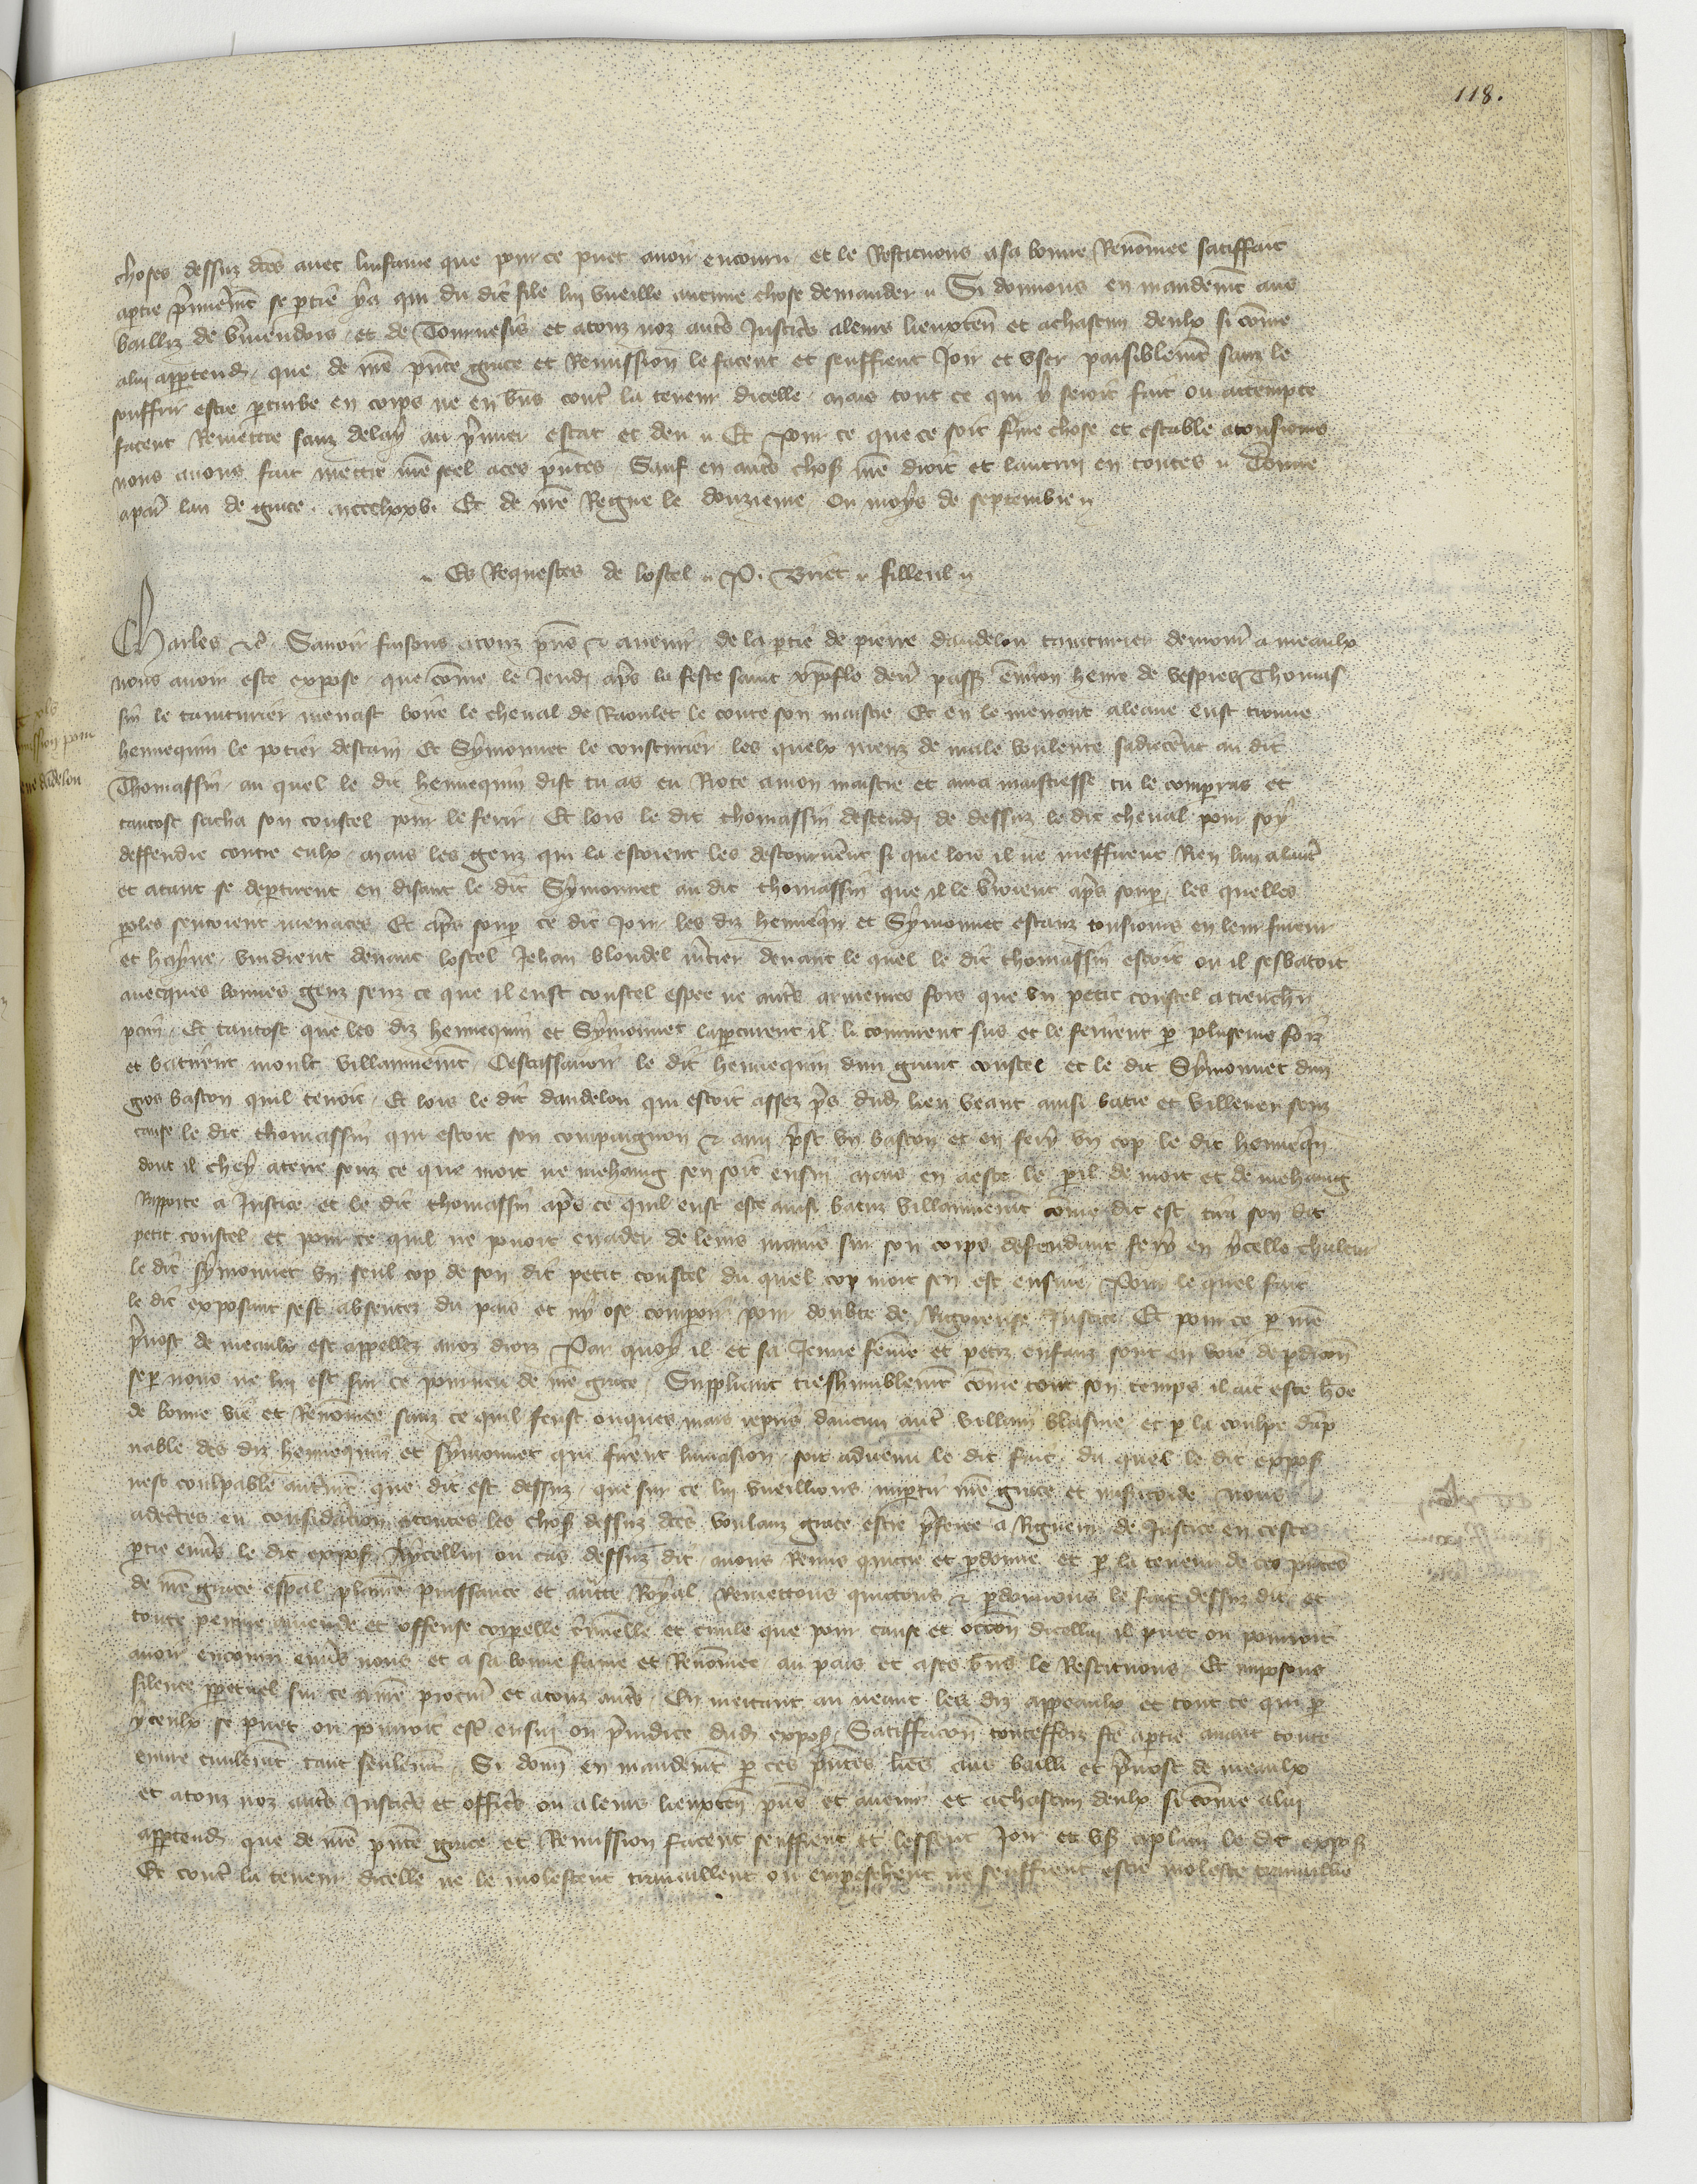 118.
choses dessuz dces avec linfame que pour ce puet avoir encouru et le Restituons a sa bonne Renommee satiffait
a ptie pmierement se ptie ya qui du dit file lui vueille aucune chose demander Si donnons en mandemt aus
bailliz de Vmendois et de Tournesis et a touz noz autres Justiciers a leurs lieuxten et a chascun deulx si come
a lui apptendra que de nre pnte grace et Remission le facent et seuffrent Joir et user paisiblemt sanz le
souffrir estre pturbe en corps ne en bns contre la teneur dicelle mais tout ce qui y seroit fait ou attempte
facent Remettre sanz delay au pmier estat et deu Et Pour ce que ce soit ferme chose et estable a tousiours
nous avons fait mettre nre scel a ces pntes Sauf en autres choses nre droit et lautruy en toutes Donne
a Paris lan de grace mccclxxv Et de nre Regne le douzieme Ou moys de septembre
Es Requestes de lostel P. Briet filleul
Charles &c Savoir faisons a touz pns & avenir de la ptie de pierre dandelou tainturier demour a meaulx
nous avoir este expose que come le Jeudi aps la feste saint xpofle derr passe environ heure de vespres Thomas
sin le tainturier menast boire le cheval de Raoulet le conte son maistre Et en le menant a leaue eust trouve
hennequin le potier destain Et Symonnet le cousturier les quelx meuz de male voulente sadrecerent au dit
Thomassin au quel le dit hennequin dist tu as eu Riote a mon maistre et a ma maistresse tu le comperras et
tantost sacha son coustel pour le ferir Et lors le dit thomassin descendi de dessuz le dit cheval pour soy
deffendre contre eulx mais les genz qui la estoient les destournerent si que lors il ne meffirent Rien lun a lautre
et atant se deptirent en disant le dit Symonnet au dit thomassin que il le verroient aps soup les quelles
poles sentoient menaces Et aps soup ce dit Jour les diz hennequin et Symonnet estanz tousiours en leur fureur
et hayne vindrent devant lostel Jehan blondel devant le quel le dit thomassin estoit ou il sesbatoit
avecques bonnes genz senz ce que il eust coustel espee ne autres armeures fors que un petit coustel a trencher
pain Et tantost que les diz hennequin et Symonnet lappcurent il li coururent sus et le ferirent p pluseurs foiz
et batirent moult villainnemt Cestassavoir le dit hennequin dun grant coustel et le dit Symonnet dun
gros baston quil tenoit Et lors le dit dandelou qui estoit assez ps dud lieu veant ainsi batre et villener senz
cause le dit thomassin qui estoit son compaignon & ami prist un baston et en fery un cop le dit hennequin
dont il chey a terre senz ce que mort ne mehaing sen soit ensui mais en a este le pil de mort et de mehaing
Rapporte a Justice et le dit thomassin aps ce quil eust este ainsi batuz villainnemt come dit est tira son dit
petit coustel et pour ce quil ne povoit evader de leurs mains sur son corps defendant fery en ycelle chaleur
le dit symonnet un seul cop de son dit petit coustel du quel cop mort sen est ensuie Pour le quel fait
le dit exposant sest absentez du pais et ny ose comparoir pour doubte de Rigoreuse Justice Et pour ce p nre
pvost de meaulx est appellez a noz droiz Par quoy il et sa Jeune feme et petiz enfanz sont en voie de pdicion
se p nous ne lui est sur ce pourveu de nre grace Suppliant treshumblemt come tout son temps il ait este home
de bonne vie et Renommee sanz ce quil feust onques mais repris daucun autre villain blasme et p la coulpe damp
nable des diz hennequin et symonnet qui firent linvasion soit advenu le dit fait du quel le dit expos
nest coulpable autremt que dit est dessuz que sur ce lui vueillions impartir nre grace et misericorde Nous
adecertes en consideracion a toutes les choses dessuz dces voulanz grace estre pferee a Rigueur de Justice en ceste
ptie envers le dit expos A ycellui ou cas dessuz dit avons Remis quictie et pdonne et p la teneur de ces pntes
de nre grace espal plaine puissance et autte Royal Remettons quictons & pdonnons le fait dessuz dit et
toute penne amende et offense corporelle criminelle et civile que pour cause et occon dicellui il puet ou pourroit
avoir encouru envers nous et a sa bonne fame et Renommee au pais et a ses bns le Restituons Et imposons
silence ppetuel sur ce a nre procur et a touz autres En mettant au neant les diz appeaulx et tout ce qui p
yceulx se puet ou pourroit estre ensui ou pjudice dud expos Satiffacion touteffoiz fte a ptie avant toute
euvre civilemt tant seulemt Si donn en mandemt p ces pntes lres aus bailli et pvost de meaulx
et a touz noz autres Justiciers et officiers ou a leurs lieuxten pns et avenir et a chascun deulx si come a lui
apptendra que de nre pnte grace et Remission facent seuffrent et lessent Joir et user a plain le dit expos
Et contre la teneur dicelle ne le molestent travaillent ou empeschent ne seuffrent estre moleste travaillie